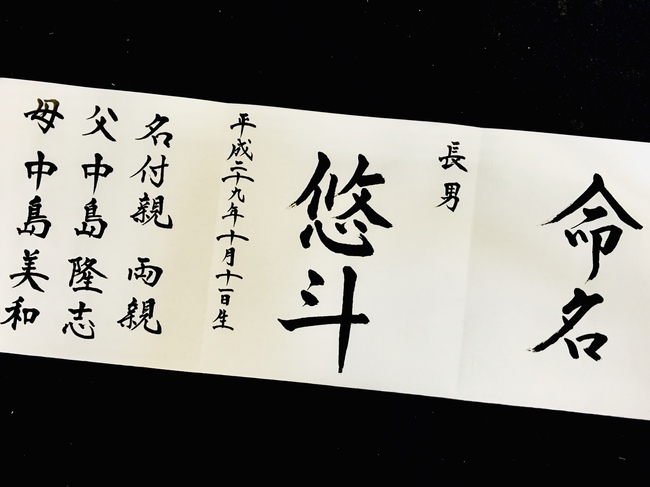 命名
長男
悠斗
平成二十九年十月十一日生
名付親 両親
父 中島 隆志
母 中島 美和